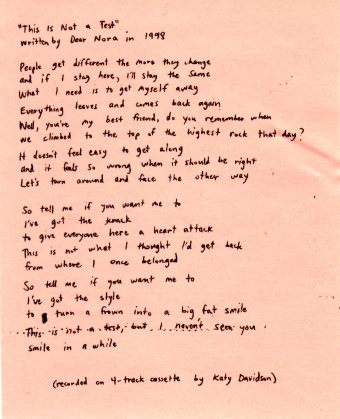 "This Is Not a Test"
written by Dear Nora in 1998
People get different the more they change
and if I stay here, I'll stay the same
What I need is to get myself away
Everything leaves and comes back again
Well, you're my best friend, do you remember when
we climbed to the top of the highest rock that day?
It doesn't feel easy to get along
and it feels so wrong when it should be right
Let's turn around and face the other way
So tell me if you want me to
I've got the knack
to give everyone here a heart attack
This is not what I thought I'd get back
from where I once belonged
So tell me if you want me to
I've got the style
to turn a frown into a big fat smile
This is not a test, but I haven't seen you
smile in a while
(recorded on 4-track cassette by Katy Davidson)